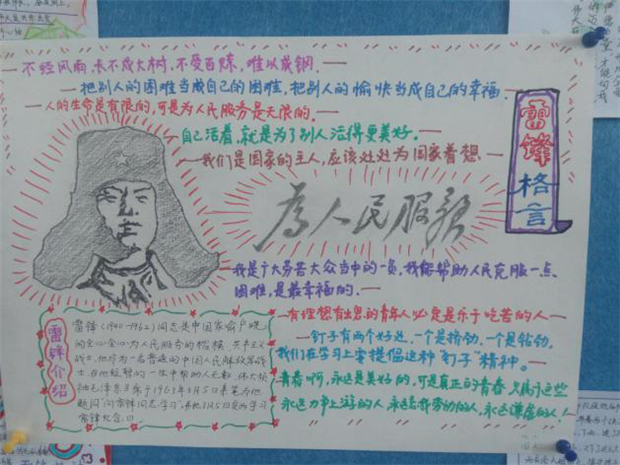 不经风雨,长不成大树,不受百炼,难以成钢.
把别人的困难当成自己的困难,把别人的愉快当成自己的幸福.
人的生命是有限的,可是为人民服务是无限的.
自己活着,就是为了别人活得更美好.
我们是国家的主人,应该处处为国家着想.
雷锋格言
為人民服務
我是广大劳苦大众当中的一员,我能帮助人民克服一点
困难,是最幸福的.
有理想有出息的青年人必定是乐于吃苦的人
钉子有两个好处,一个是挤劲,一个是钻劲,
我们在学习上要提倡这种"钉子"精神。
青春啊,永远是美好的,可是真正的青春,只属于这些
永远力争上游的人,永远忘我劳动的人,永远谦虚的人!
雷锋介绍
雷锋(1940-1962)同志是中国家喻户晓
的全心全意为人民服务的楷模,共产主义
战士,他作为一名普通的中国人民解放军战
士,在他短暂的一生中帮助的人无数,伟大领
袖毛泽东主席于1963年3月5日亲笔为他
题词"向雷锋同志学习",并把3月5日定为学习
雷锋